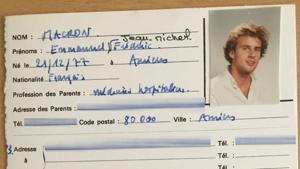 NOM : MACRON Jean Michel
Prénoms : Emmanuel Frédéric
Né le 21/12/77 à Amiens
Nationalité Français
Profession des Parents : médecins hospitaliers
Adresse des Parents :
Tél. : Code postal : 80.000 Ville : Amiens
Adresse Tél. :
à Tél. :